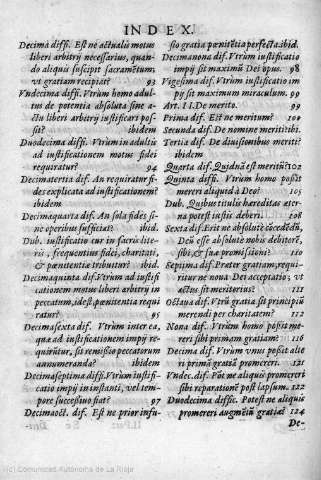 INDEX.
Decima diffi. Est ne actualis motus
liberi arbitrij necessarius, quan-
do aliquis suscipit sacramẽtum,
vt gratiam recipiat? 92
Vndecima diffi. Vtrum homo adul-
tus de potentia absoluta sine a-
ctu liberi arbitrij iustificari pos-
sit? ibidem
Duodecima diffi. Vtrum in adultis
ad iustificationem motus fidei
requiratur? 94
Decimatertia dif. An requiratur fi-
des explicata ad iustificationem?
ibidem
Decimaquarta dif. An sola fides si-
ne operibus sufficiat? ibid.
Dub. iustificatio cur in sacris lite-
ris, frequentius fidei, charitati,
& pœnitentiæ tribuitur? ibid.
Decimaquinta dif. Vtrum ad iusti-
ficationem motus liberi arbitrij in
peccatum, id est, pœnitentia requi
ratur? 95
Decimasexta dif. Vtrum inter ea,
quæ ad iustificationem impij re-
quirũtur, sit remissio peccatorum
annumeranda? ibidem
Decimaseptima diffi. Vtrum iustifi-
catio impij in instanti, vel tem-
pore successiuo fiat? 97
Decimaoct. dif. Est ne prior infu-
sio gratia pœnitẽtia perfecta. ibid.
Decimanona dif. Vtrum iustificatio
impij sit maximũ Dei opus. 98
Vigesima dif. Vtrum iustificatio im
pij sit maximum miraculum. 99
Art. II. De merito. 99
Prima dif. Est ne meritum? 100
Secunda dif. De nomine meriti. ibi.
Tertia dif. De diuisionibus meriti?
ibidem
Quarta dif. Quidnã est meritũ? 102
Quinta dif. Vtrum homo possit
mereri aliquid à Deo? 105
Dub. Quibus titulis hæreditas æter-
na potest iustis deberi. 108
Sexta dif. Erit ne absolutè cõcedẽdũ,
Deũ esse absolutè nobis debitorẽ,
sibi, & suæ promissioni? 110
Septima dif. Præter gratiam, requi-
ritur ne noua Dei acceptatio; vt
actus sit meritorius? 111
Octaua dif. Vtrũ gratia sit principiũ
merendi per charitatem? 112
Nona dif. Vtrum homo possit me-
reri sibi primam gratiam? 116
Decima dif. Vtrum vnus possit alte
ri primã gratiã promereri. 121
Vndec. dif. Põt ne aliquis promereri
sibi reparationẽ post lapsum. 122
Duodecima diffic. Potest ne aliquis
promereri augmẽtũ gratiæ? 124
De-
(c) Comunidad Autónoma de La Rioja